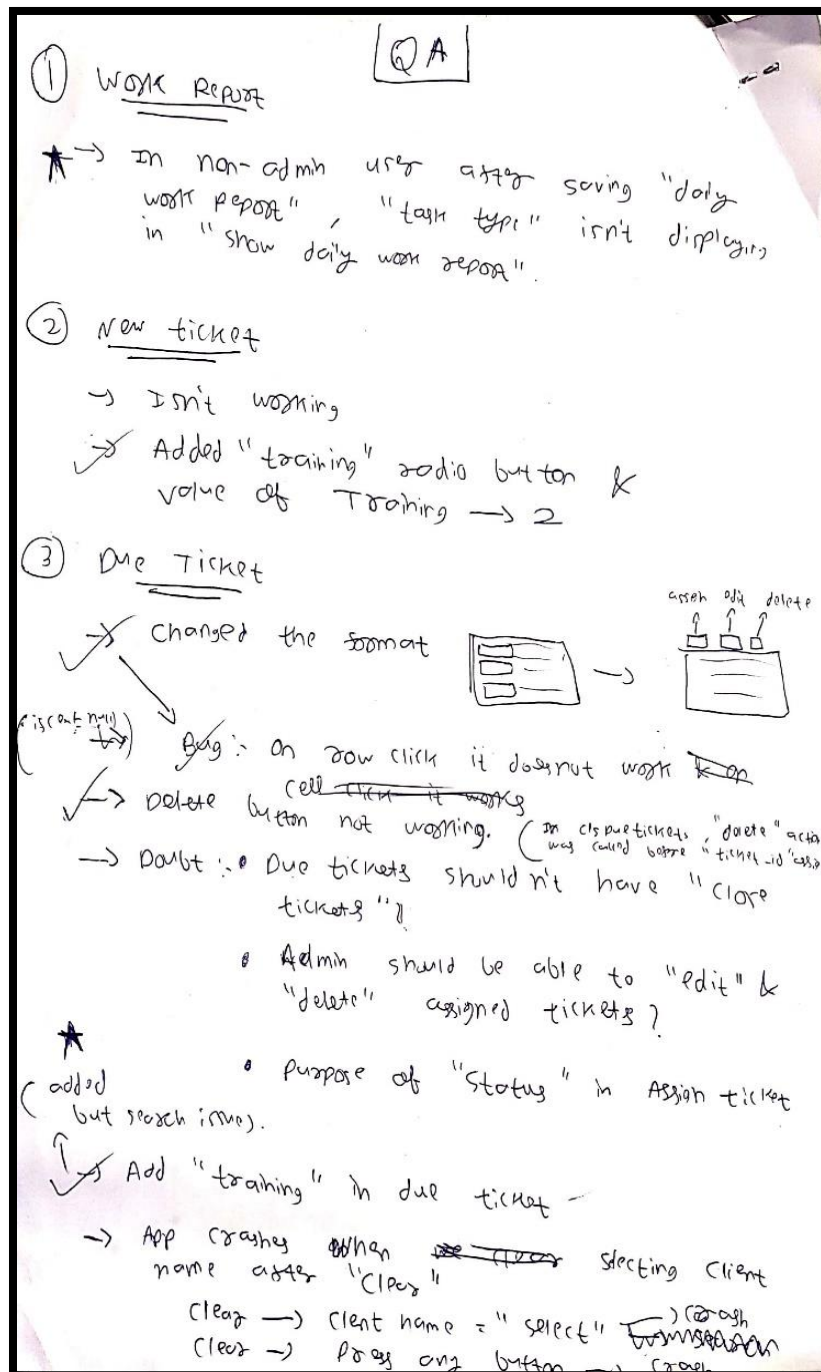 QA
① Work Report
★ → In non-admin user after saving "daily
work report", "task type" isn't displaying
in "show daily work report".
② New ticket
→ Isn't working
→ Added "training" radio button &
value of Training → 2
③ Due Ticket
assign edit delete
→ Changed the format →
Bug :- On row click it does not work
cell click it works
→ Delete button not working. (In cls Due tickets, "delete" action
was called before "ticket_id"
→ Doubt :- • Due tickets shouldn't have "Close
tickets"?
• Admin should be able to "edit" &
"delete" assigned tickets?
★
• Purpose of "Status" in Assign ticket
(added
but search issue).
→ Add "training" in due ticket -
→ App crashes when selecting Client
name after "Clear"
Clear → Client name = "select" → crash
Clear → Press any button → crash